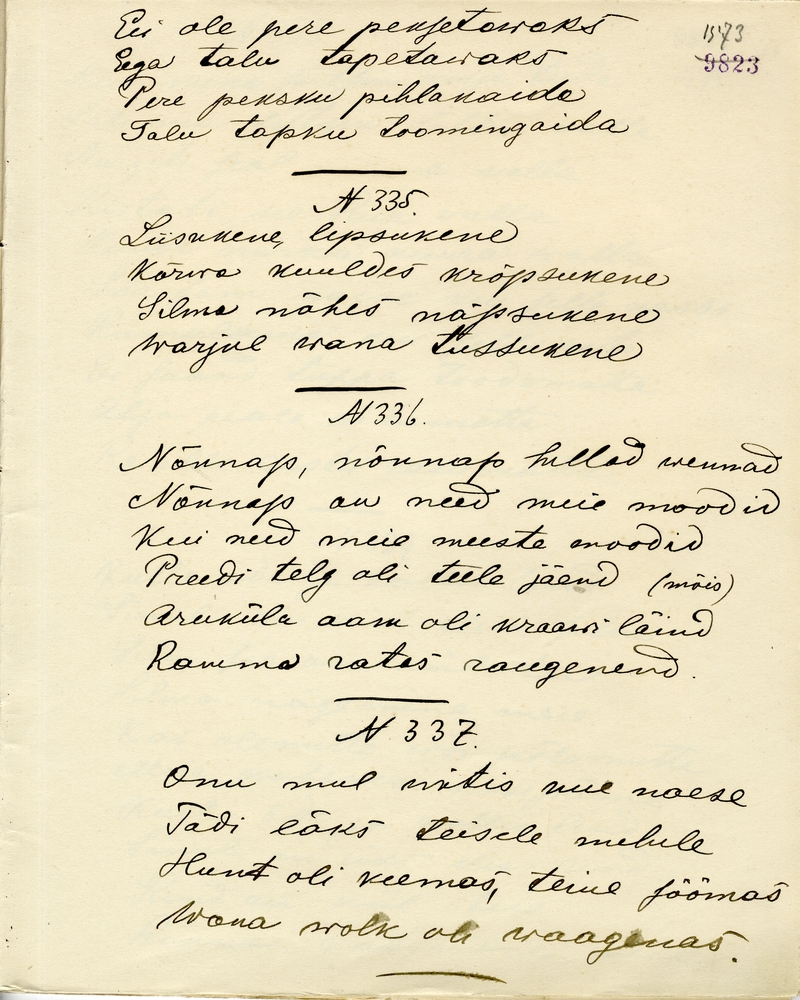 1573
9823
Ei ole pere peksetawaks
Ega talu tapetawaks
Pere peksku pihlakaida
Talu tapku toomingaida
N 335.
Liisukene, lipsukene
Kõrwa kuuldes krõpsukene
Silma nähes näpsukene
Warjul wana tussukene
N 336.
Nõnnap, nõnnap hullad wennad
Nõnnap on need meie moodid
Kui need meie meeste moodid
Preedi telg oli teele jäend (mõis)
Aruküla aam oli kraawi läind
Ramma ratas raugenend.
N 337.
Onu mul wõtis uue naese
Tädi läks teisele mehele
Hunt oli keemas, teine söömas
Wana wolk oli waagenas.